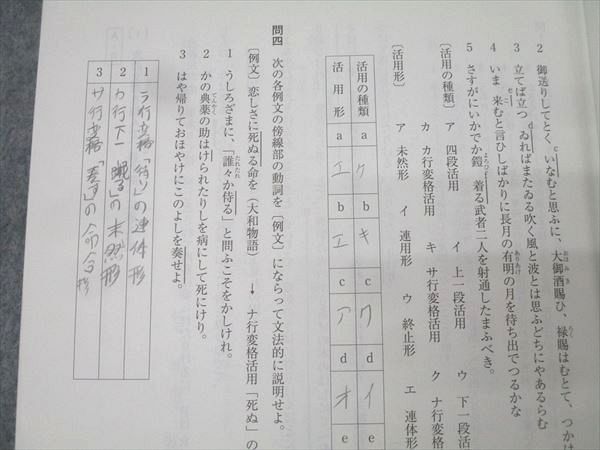 2 御送りしてとくいなむと思ふに、大御酒賜ひ、禄賜はむとて、つかは
3 立てば立つゐればまたゐる吹く風と波とは思ふどちにやあるらむ
4 いま来むと言ひしばかりに長月の有明の月を待ち出でつるかな
5 さすがにいかでか鎧着る武者二人を射通したまふべき。
〔活用の種類〕 ア 四段活用 イ 上一段活用 ウ 下一段
カ カ行変格活用 キ サ行変格活用 ク ナ行変格
〔活用形〕 ア 未然形 イ 連用形 ウ 終止形 エ 連体形
活用の種類 a ケ b キ c ク d イ e
活用形 a エ b エ c ア d オ e
問四 次の各例文の傍線部の動詞を〔例文〕にならって文法的に説明せよ。
〔例文〕恋しさに死ぬる命を（大和物語） → ナ行変格活用「死ぬ」の
1 うしろざまに、「誰々か侍る」と問ふこそをかしけれ。
2 かの典薬の助はけられたりしを病にして死にけり。
3 はや帰りておほやけにこのよしを奏せよ。
1 ラ行変格「侍り」の連体形
2 カ行下一「蹴る」の未然形
3 サ行変格「奏す」の命令形